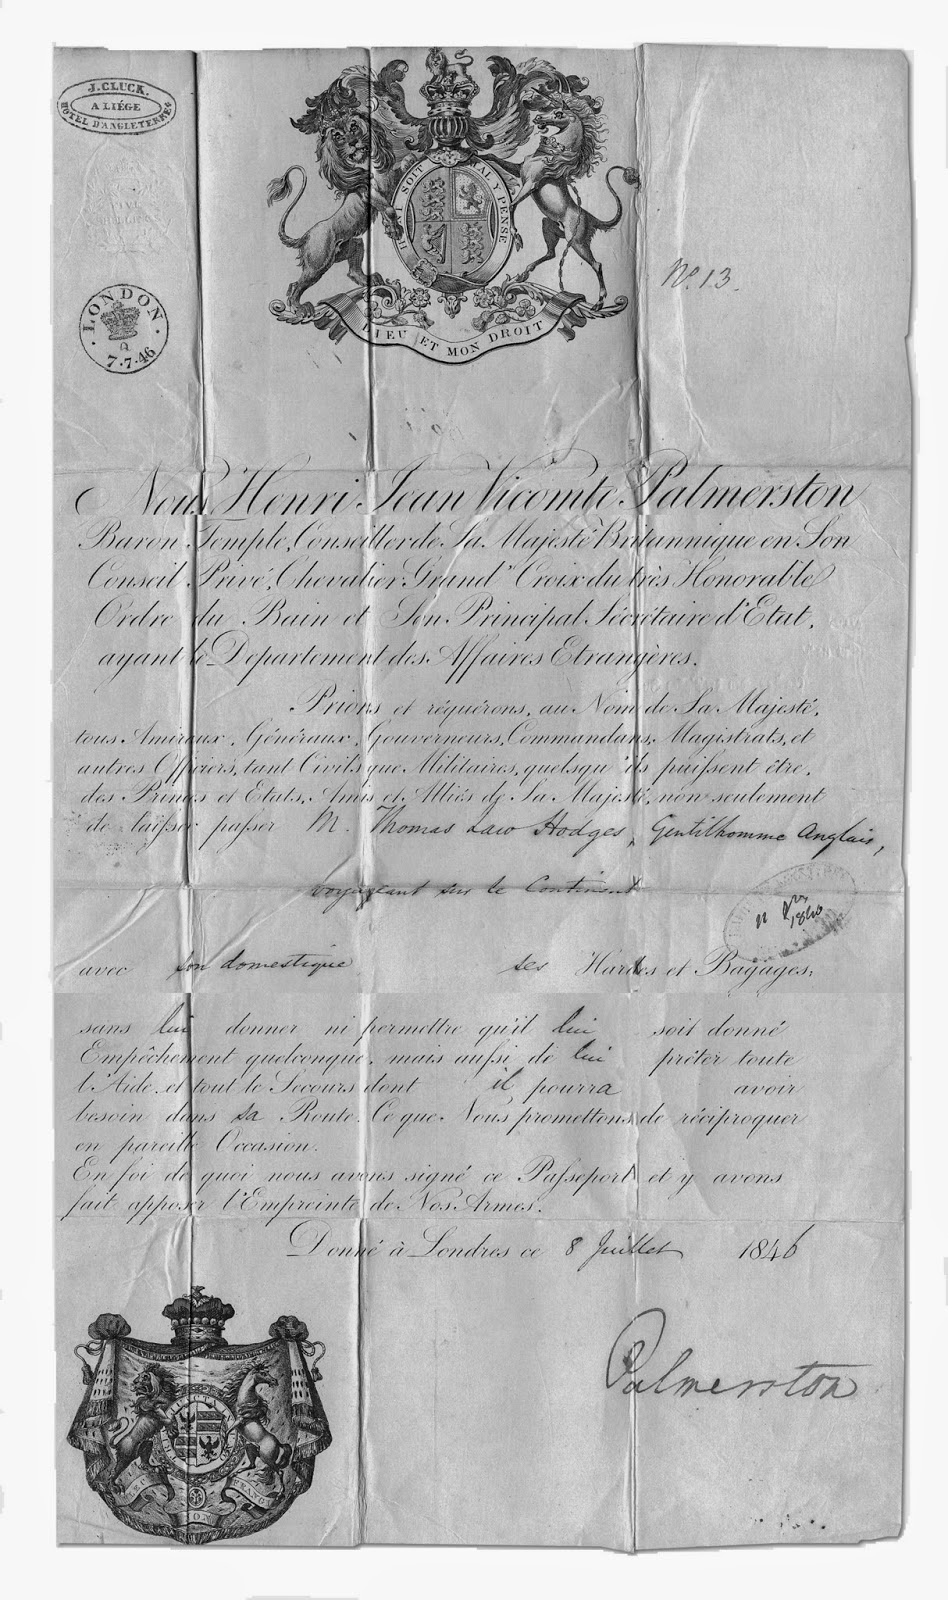 J. CLUCK.
A LIÉGE
HÔTEL D'ANGLETERRE
LONDON
7·7·46
HONI SOIT QUI MAL Y PENSE
DIEU ET MON DROIT
No. 13.
Nous Henri Jean Vicomte Palmerston
Baron Temple, Conseiller de Sa Majesté Britannique en Son
Conseil Privé, Chevalier Grand' Croix du très Honorable
Ordre du Bain et Son Principal Sécrétaire d'Etat,
ayant le Departement des Affaires Etrangères.
Prions et réquérons, au Nom de Sa Majesté,
tous Amiraux, Généraux, Gouverneurs, Commandans, Magistrats, et
autres Officiers, tant Civils que Militaires, quelsqu'ils puissent être,
des Princes et Etats, Amis et Alliés de Sa Majesté, non seulement
de laisser passer M. Thomas Law Hodges, Gentilhomme Anglais,
voyageant sur le Continent
avec son domestique ses Hardes et Bagages;
sans lui donner ni permettre qu'il lui soit donné
Empêchement quelconque, mais aussi de lui prêter toute
l'Aide et tout le Secours dont il pourra avoir
besoin dans sa Route. Ce que Nous promettons de réciproquer
en pareille Occasion.
En foi de quoi nous avons signé ce Passeport et y avons
fait apposer l'Empreinte de Nos Armes.
Donné à Londres ce 8 Juillet 1846
Palmerston
FLECTI
NON
FRANGI